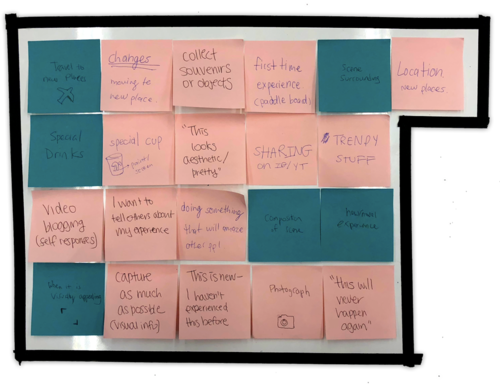 Travel to
new place
Changes
moving to
new place.
collect
souvenirs
or objects
first time
experience
(paddle board)
Same
surrounding
Location
new places.
Special
Drinks
special cup
"This
looks
aesthetic/
pretty"
SHARING
on IG/YT
TRENDY
STUFF
Video
blogging
(self responses)
I want to
tell others about
my experience
doing something
that will amaze
other ppl
of time
experience
Capture
as much
as possible
(visual info)
This is new—
I haven't
experienced
this before
Photograph
"this will
never
happen
again"